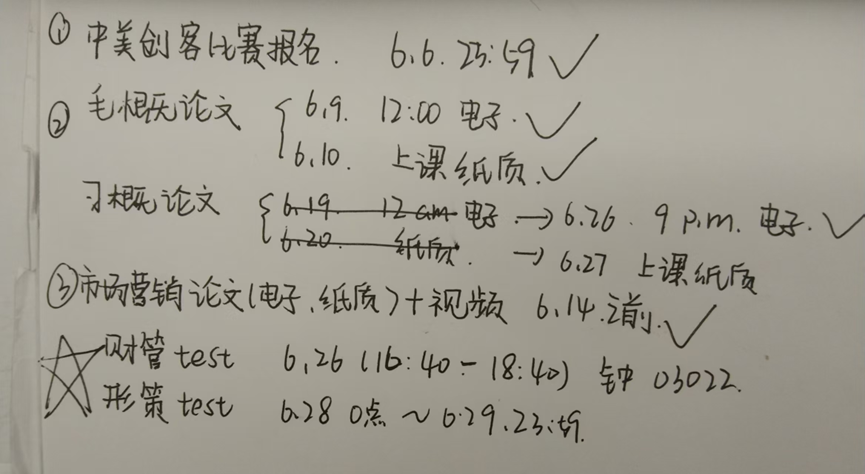 ① 中美创客比赛报名. 6.6. 23:59 ✓
② 毛概论文 { 6.9. 12:00 电子. ✓
6.10. 上课纸质. ✓
习概论文 { 6.19. 12 am 电子. → 6.26. 9 p.m. 电子. ✓
6.20. 纸质. → 6.27 上课纸质
③ 市场营销论文(电子、纸质)+视频 6.14.之前. ✓
☆ 财管 test 6.26 (16:40-18:40) 钟 03022.
形策 test 6.28 0点~6.29.23:59.